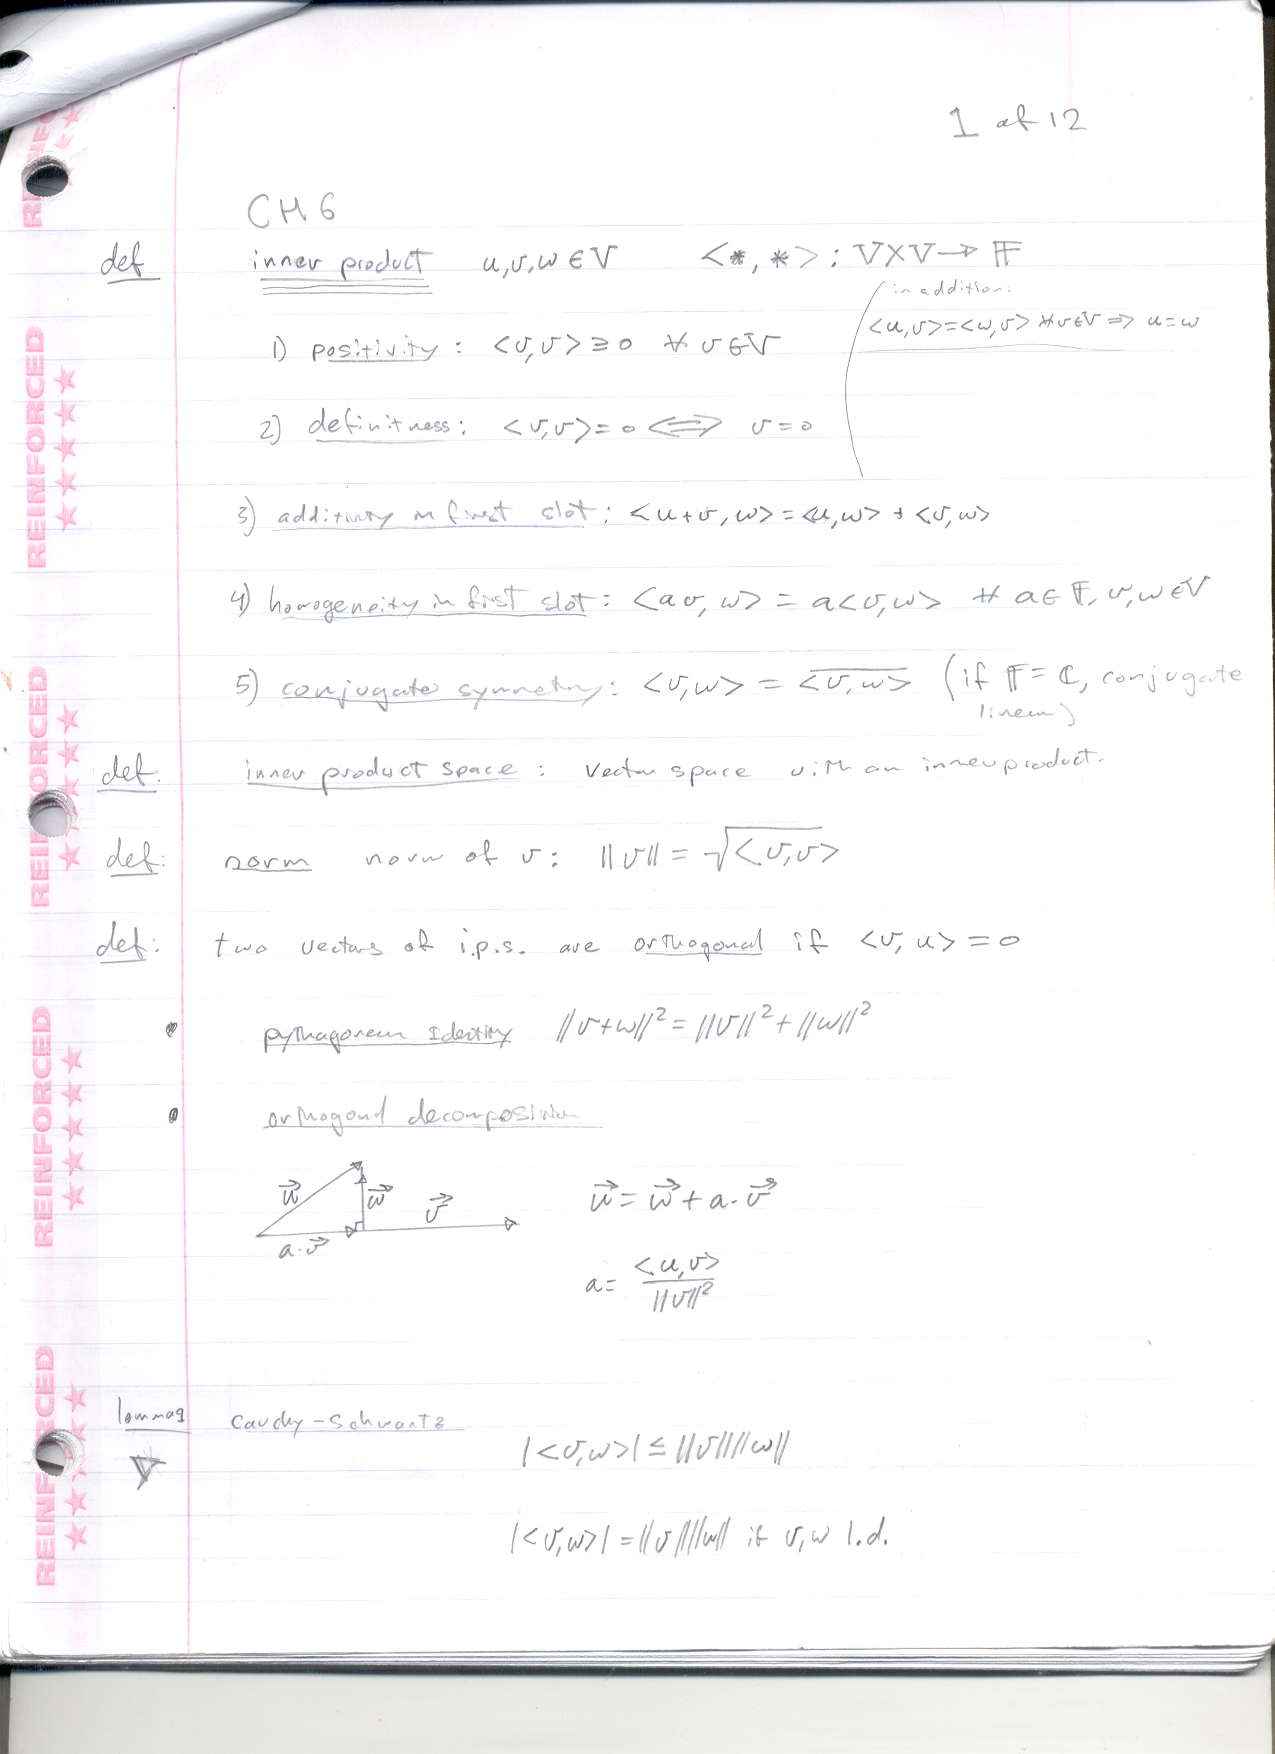 1 of 12
CH 6
def inner product u,v,w ∈ V <*,*> : V×V → F
in addition:
<u,v>=<w,v> ∀v∈V ⇒ u=w
1) positivity: <v,v> ≥ 0 ∀ v ∈ V
2) definitness: <v,v> = 0 ⇔ v = 0
3) additivity in first slot: <u+v,w> = <u,w> + <v,w>
4) homogeneity in first slot: <av,w> = a<v,w> ∀ a ∈ F, v,w ∈ V
5) conjugate symmetry: <v,w> = \overline{<v,w>} (if F = ℂ, conjugate
linear)
def. inner product space: vector space with an inner product.
def: norm norm of v: ||v|| = √<v,v>
def: two vectors of i.p.s. are orthogonal if <v,u> = 0
• pythagorean Identity ||v+w||² = ||v||² + ||w||²
• orthogonal decomposition
u⃗ w⃗ v⃗ u⃗ = w⃗ + a·v⃗
a·v⃗
a = <u,v> / ||v||²
Cauchy-Schwartz
|<v,w>| ≤ ||v|| ||w||
|<v,w>| = ||v|| ||w|| if v,w l.d.
REINFORCED
REINFORCED
REINFORCED
REINFORCED
REINFORCED